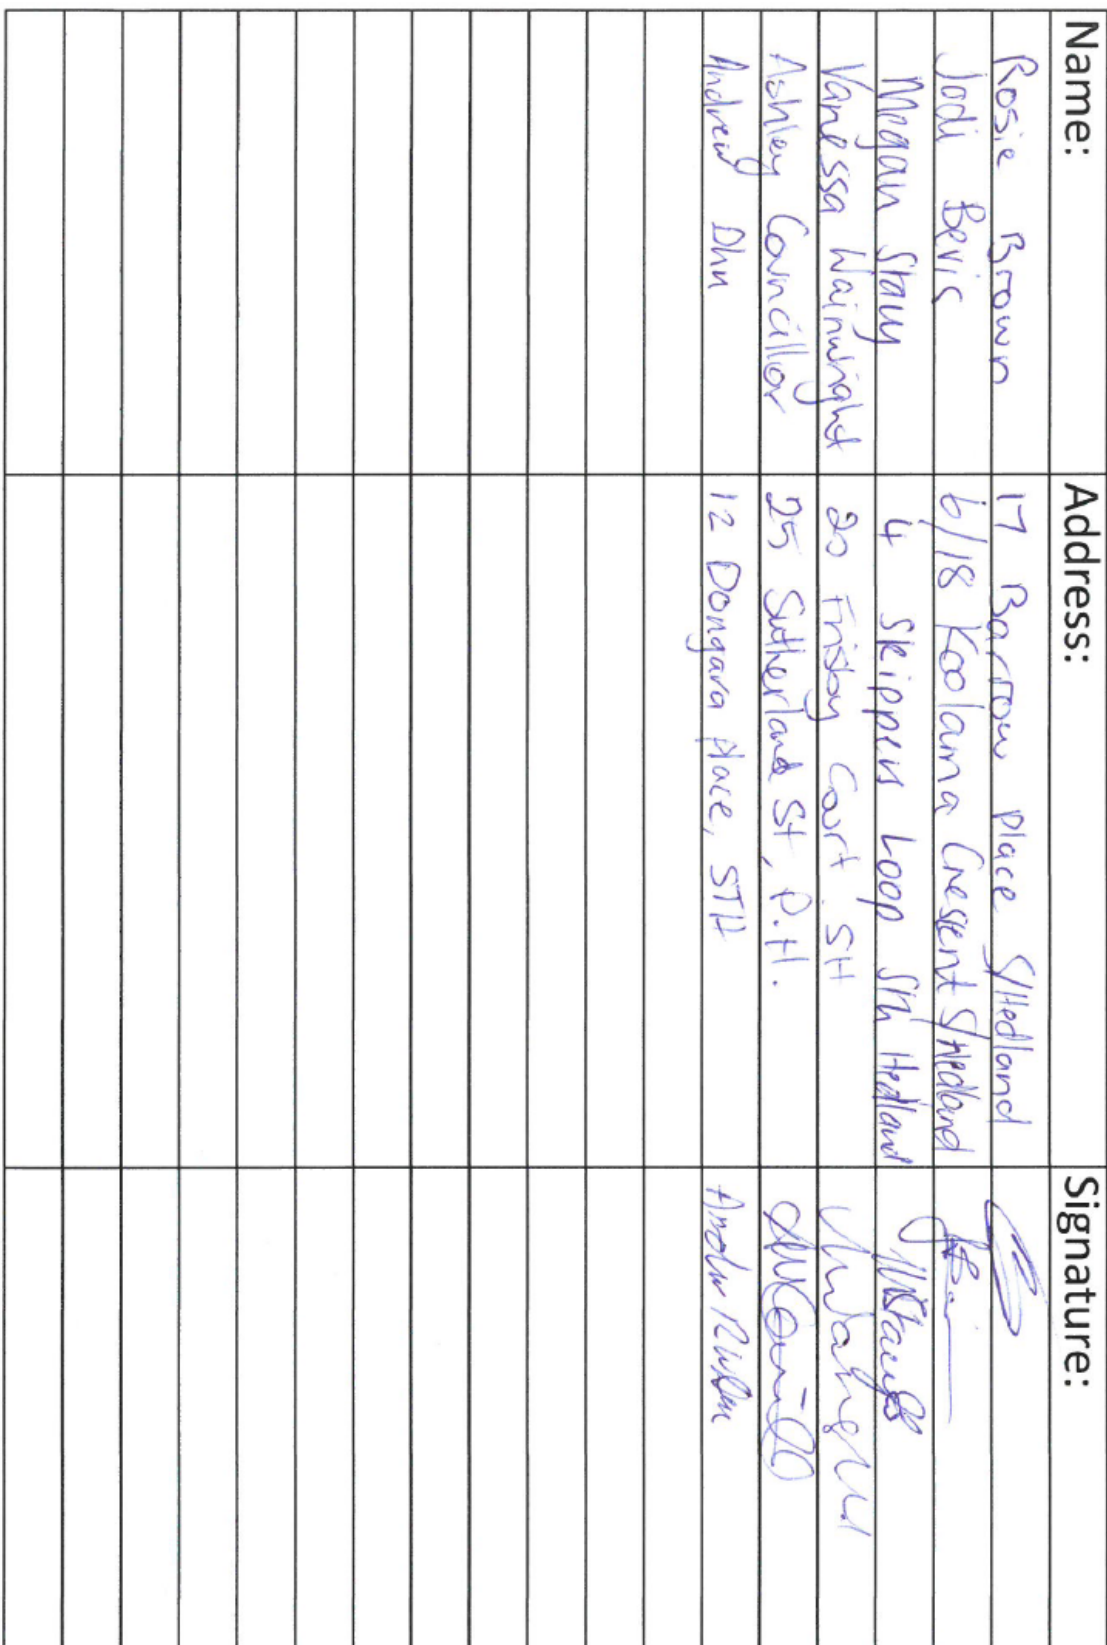 Name: Address: Signature:
Rosie Brown 17 Barrow Place S/Hedland
Jodi Bevis 6/18 Koolama Cresent S/Hedland
Megan 4 Skippers Loop Sth Hedland
Vanessa Wainwright 20 Frisby Court SH
Ashley Councillor 25 Sutherland St, P.H.
Andrew Dhu 12 Dongara Place, STH